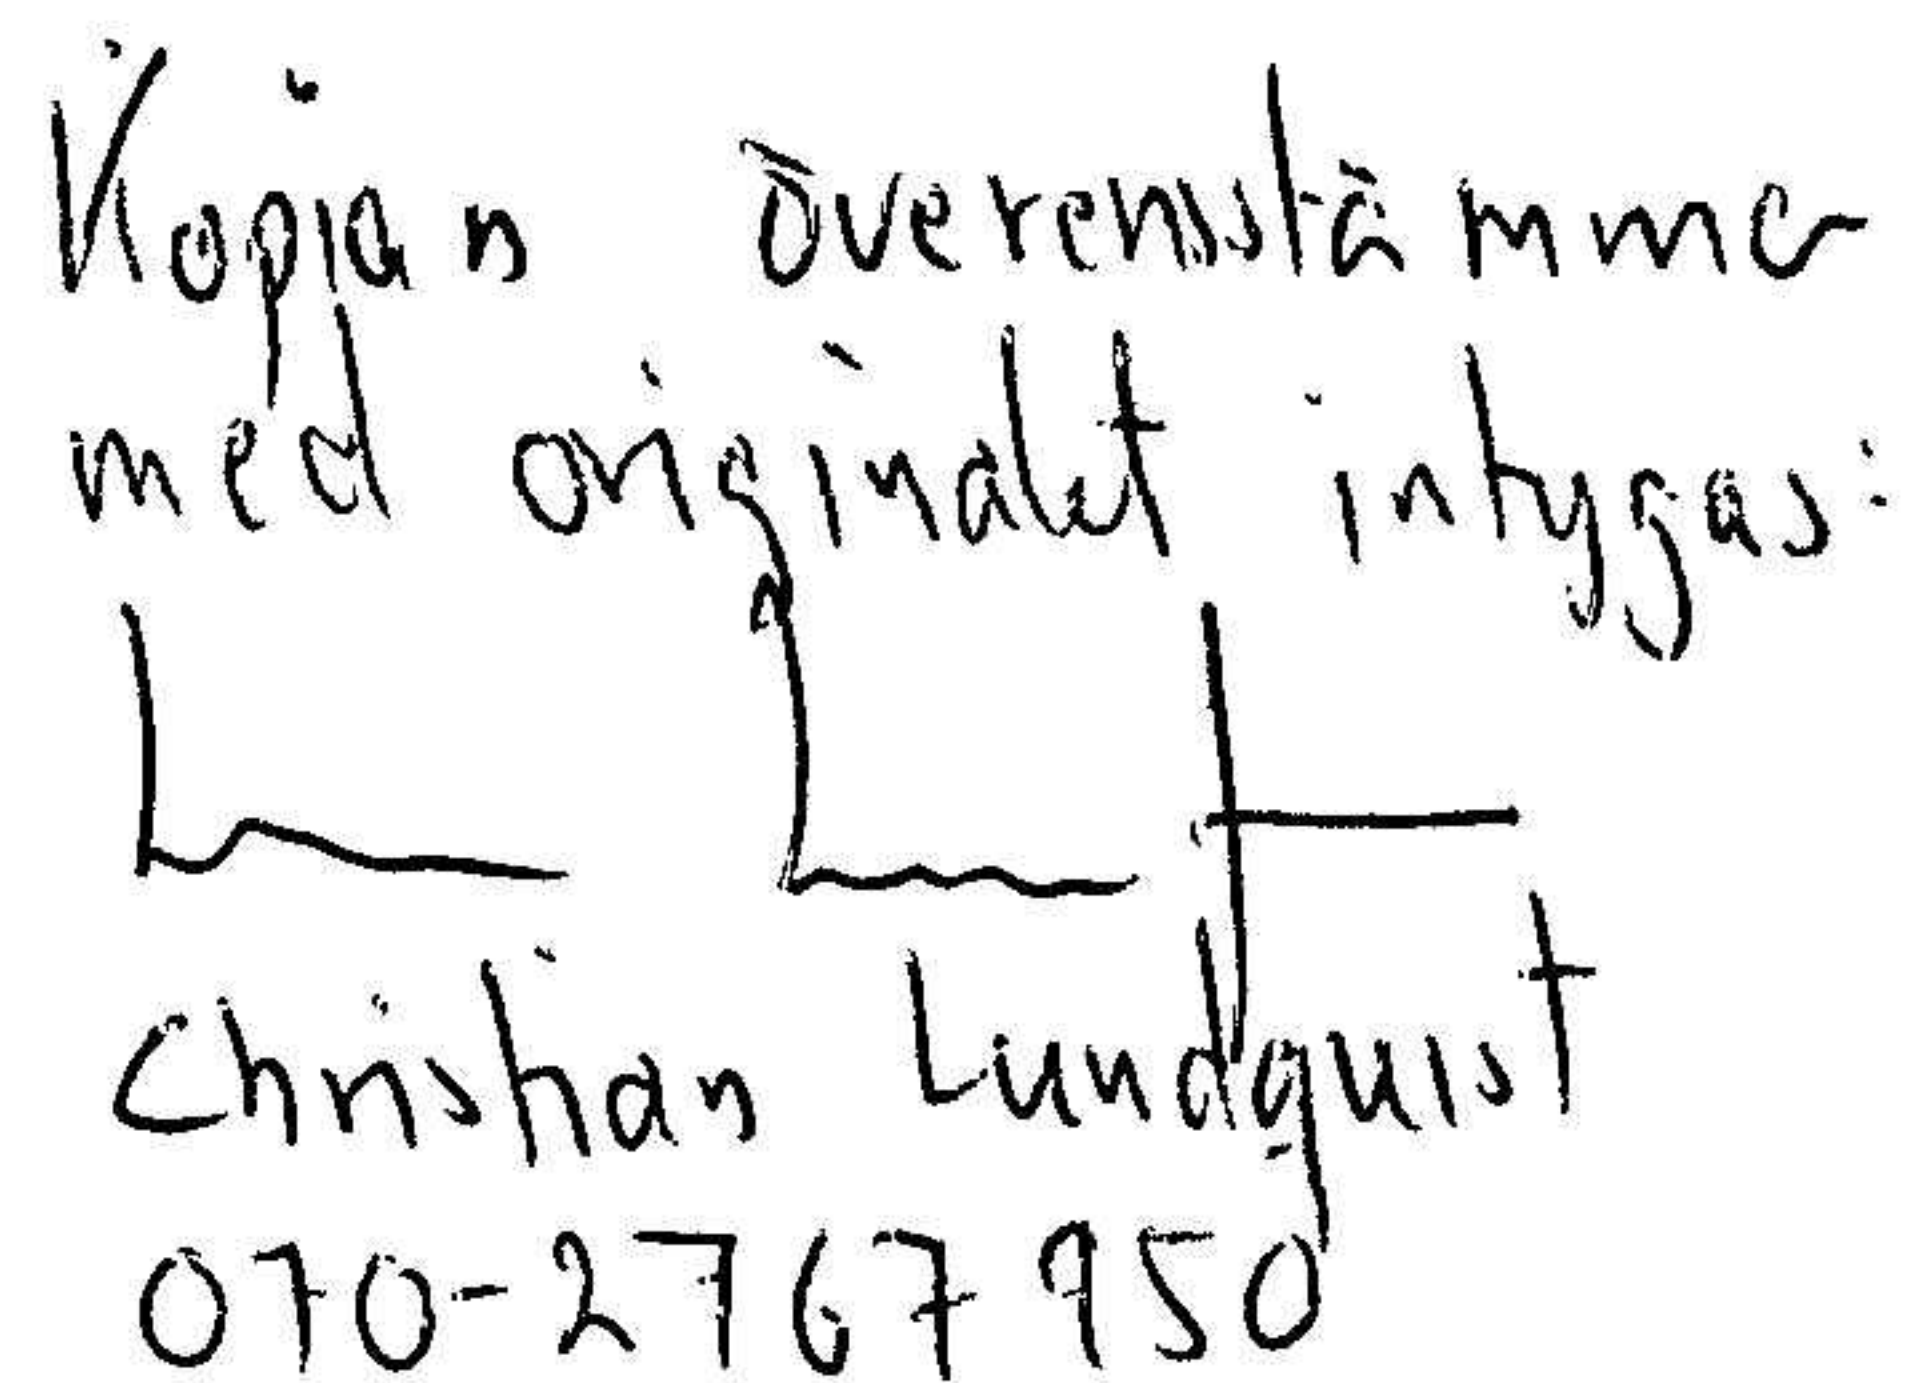 Kopian överensstämmer
med originalet intygas:
Christian Lundquist
070-2767950